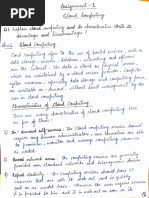 Assignment - 1
Cloud Computing
Q1 Explain Cloud Computing and its characteristics state its
Advantage and Disadvantage?
Ans:1 Cloud Computing
Cloud Computing refers to the use of hosted services, such as
data storage, servers, databases, networking, and software
over the internet. The data is stored on physical servers,
which are maintained by a cloud service provider. Computer
system resources, especially data storage and computing power,
are available on-demand, without direct management by the
user in cloud computing.
Characteristics of Cloud Computing
There are many characteristics of Cloud Computing here are
few of them:
1) On-demand self-services: the Cloud computing services
does not require any human administrators, user themselves
are able to provision, monitor and manage computing
resources as needed.
2) Broad network access: the Computing services are generally
provided over standard networks and heterogeneous devices.
3) Rapid elasticity: the Computing services should have IT
resources that are able to scale out and in quickly
and on as needed basis. Whenever the user require services
it is provided to him and it is scale out as soon